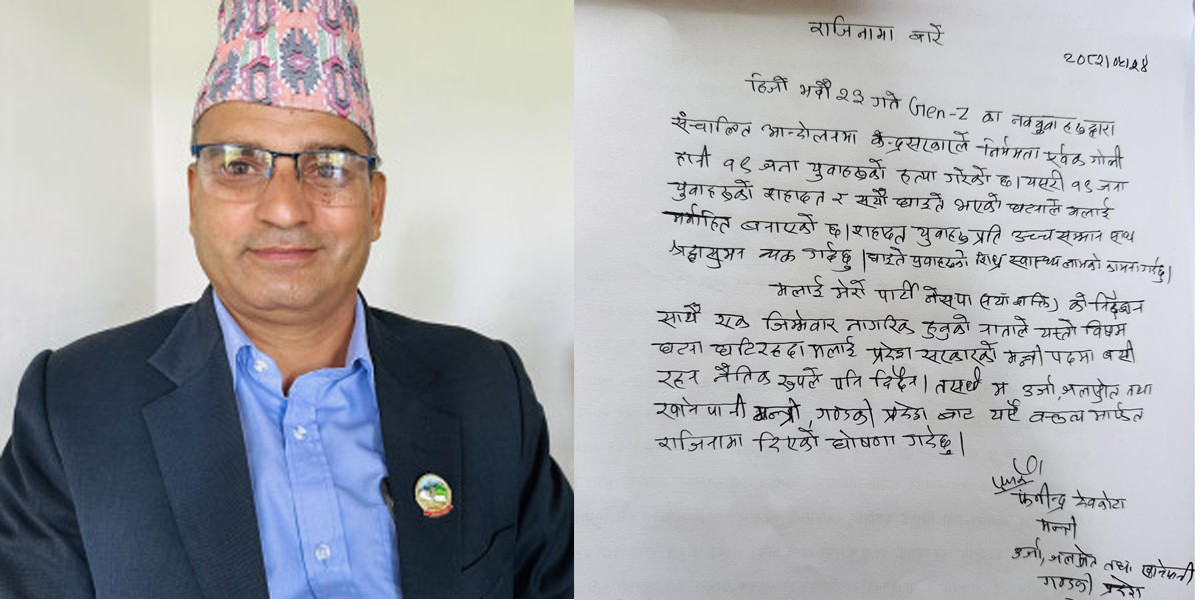 राजिनामा बारे
२०८२।०५।२४
हिजो भदौ २३ गते Gen-Z का नवयुवाहरुद्वारा
संचालित आन्दोलनमा केन्द्रसरकारले निर्ममता पूर्वक गोली
हानी १९ जना युवाहरुको हत्या गरेको छ। यसरी १९ जना
युवाहरुको शहादत र सयौं घाइते भएको घटनाले मलाई
मर्माहित बनाएको छ। शहादत युवाहरु प्रति उच्च सम्मान साथ
श्रद्धासुमन व्यक्त गर्दछु। घाइते युवाहरुको शिघ्र स्वास्थ्य लाभको कामना गर्दछु।
मलाई मेरो पार्टी नेसपा (नयाँ शक्ति) को निर्देशन
साथै एक जिम्मेवार नागरिक हुनुको नाताले यस्तो विषम
घटना घटिरहदा मलाई प्रदेश सरकारको मन्त्री पदमा बसी
रहन नैतिक रुपले पनि दिदैन। तसर्थ म उर्जा, जलस्रोत तथा
खानेपानी मन्त्री, गण्डकी प्रदेश बाट यसै वक्तव्य मार्फत
राजिनामा दिएको घोषणा गर्दछु।
फणीन्द्र देवकोटा
मन्त्री
उर्जा, जलस्रोत तथा खानेपानी
गण्डकी प्रदेश